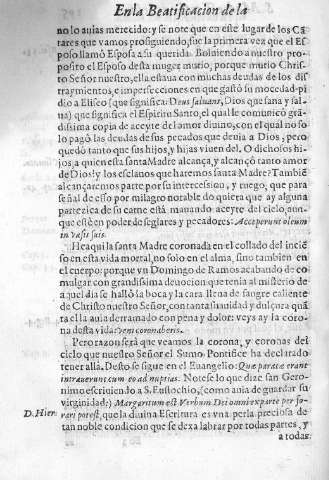 En la Beatificacion de la
no lo auias merecido: y se note que en este lugar de los Cã
tares que vamos prosiguiendo, fue la primera vez que el Es
poso llamó Esposa a su querida. Boluiendo a nuestro pro
posito el Esposo desta muger murio, porque murio Chris
to Señor nuestro, ella estaua con muchas deudas de los dis
traymientos, e imperfecciones en que gastó su mocedad pi
dio a Eliseo (que significa: Deus saluans, Dios que sana y sal
ua) que significa el Espiritu Santo, el qual le comunicó grã
dissima copia de azeyte del amor diuino, con el qual no so
lo pagó las deudas de sus pecados que deuia a Dios, pero
quedó tanto que sus hijos, y hijas viuen del. O dichosos hi
jos, a quien esta santa Madre alcança, y alcançó tanto amor
de Dios! y los esclauos que haremos santa Madre? Tambiẽ
alcançaremos parte por su intercession, y ruego, que para
señal de esso por milagro notable do quiera que ay alguna
partezica de su carne está manando azeyte del cielo, aun-
que esté en poder de seglares y pecadores: Acceperunt oleum
in vasis suis.
He aqui la santa Madre coronada en el collado del inciẽ
so en esta vida mortal, no solo en el alma, sino tambien en
el cuerpo: porque vn Domingo de Ramos acabando de co
mulgar con grandissima deuocion que tenia al misterio de
aquel dia se halló la boca y la cara llena de sangre caliente
de Christo nuestro Señor, con tanta suauidad y dulçura quã
ta ella auia derramado con pena y dolor: veys ay la coro
na desta vida: veni coronaberis.
Pero razon será que veamos la corona, y coronas del
cielo que nuestro Señor el Sumo Pontifice ha declarado
tener allá. Desto se sigue en el Euangelio: Quæ paratæ erant
intrauerunt cum eo ad nuptias. Notese lo que dize san Gero-
nimo escriuiendo a S. Eustochio, (como auia de guardar su
virginidad:) Margaritum est Verbum Dei omni ex parte per fo-
D. Hier. rari potest, que la diuina Escritura es vna perla preciosa de
tan noble condicion que se dexa labrar por todas partes, y
a todas